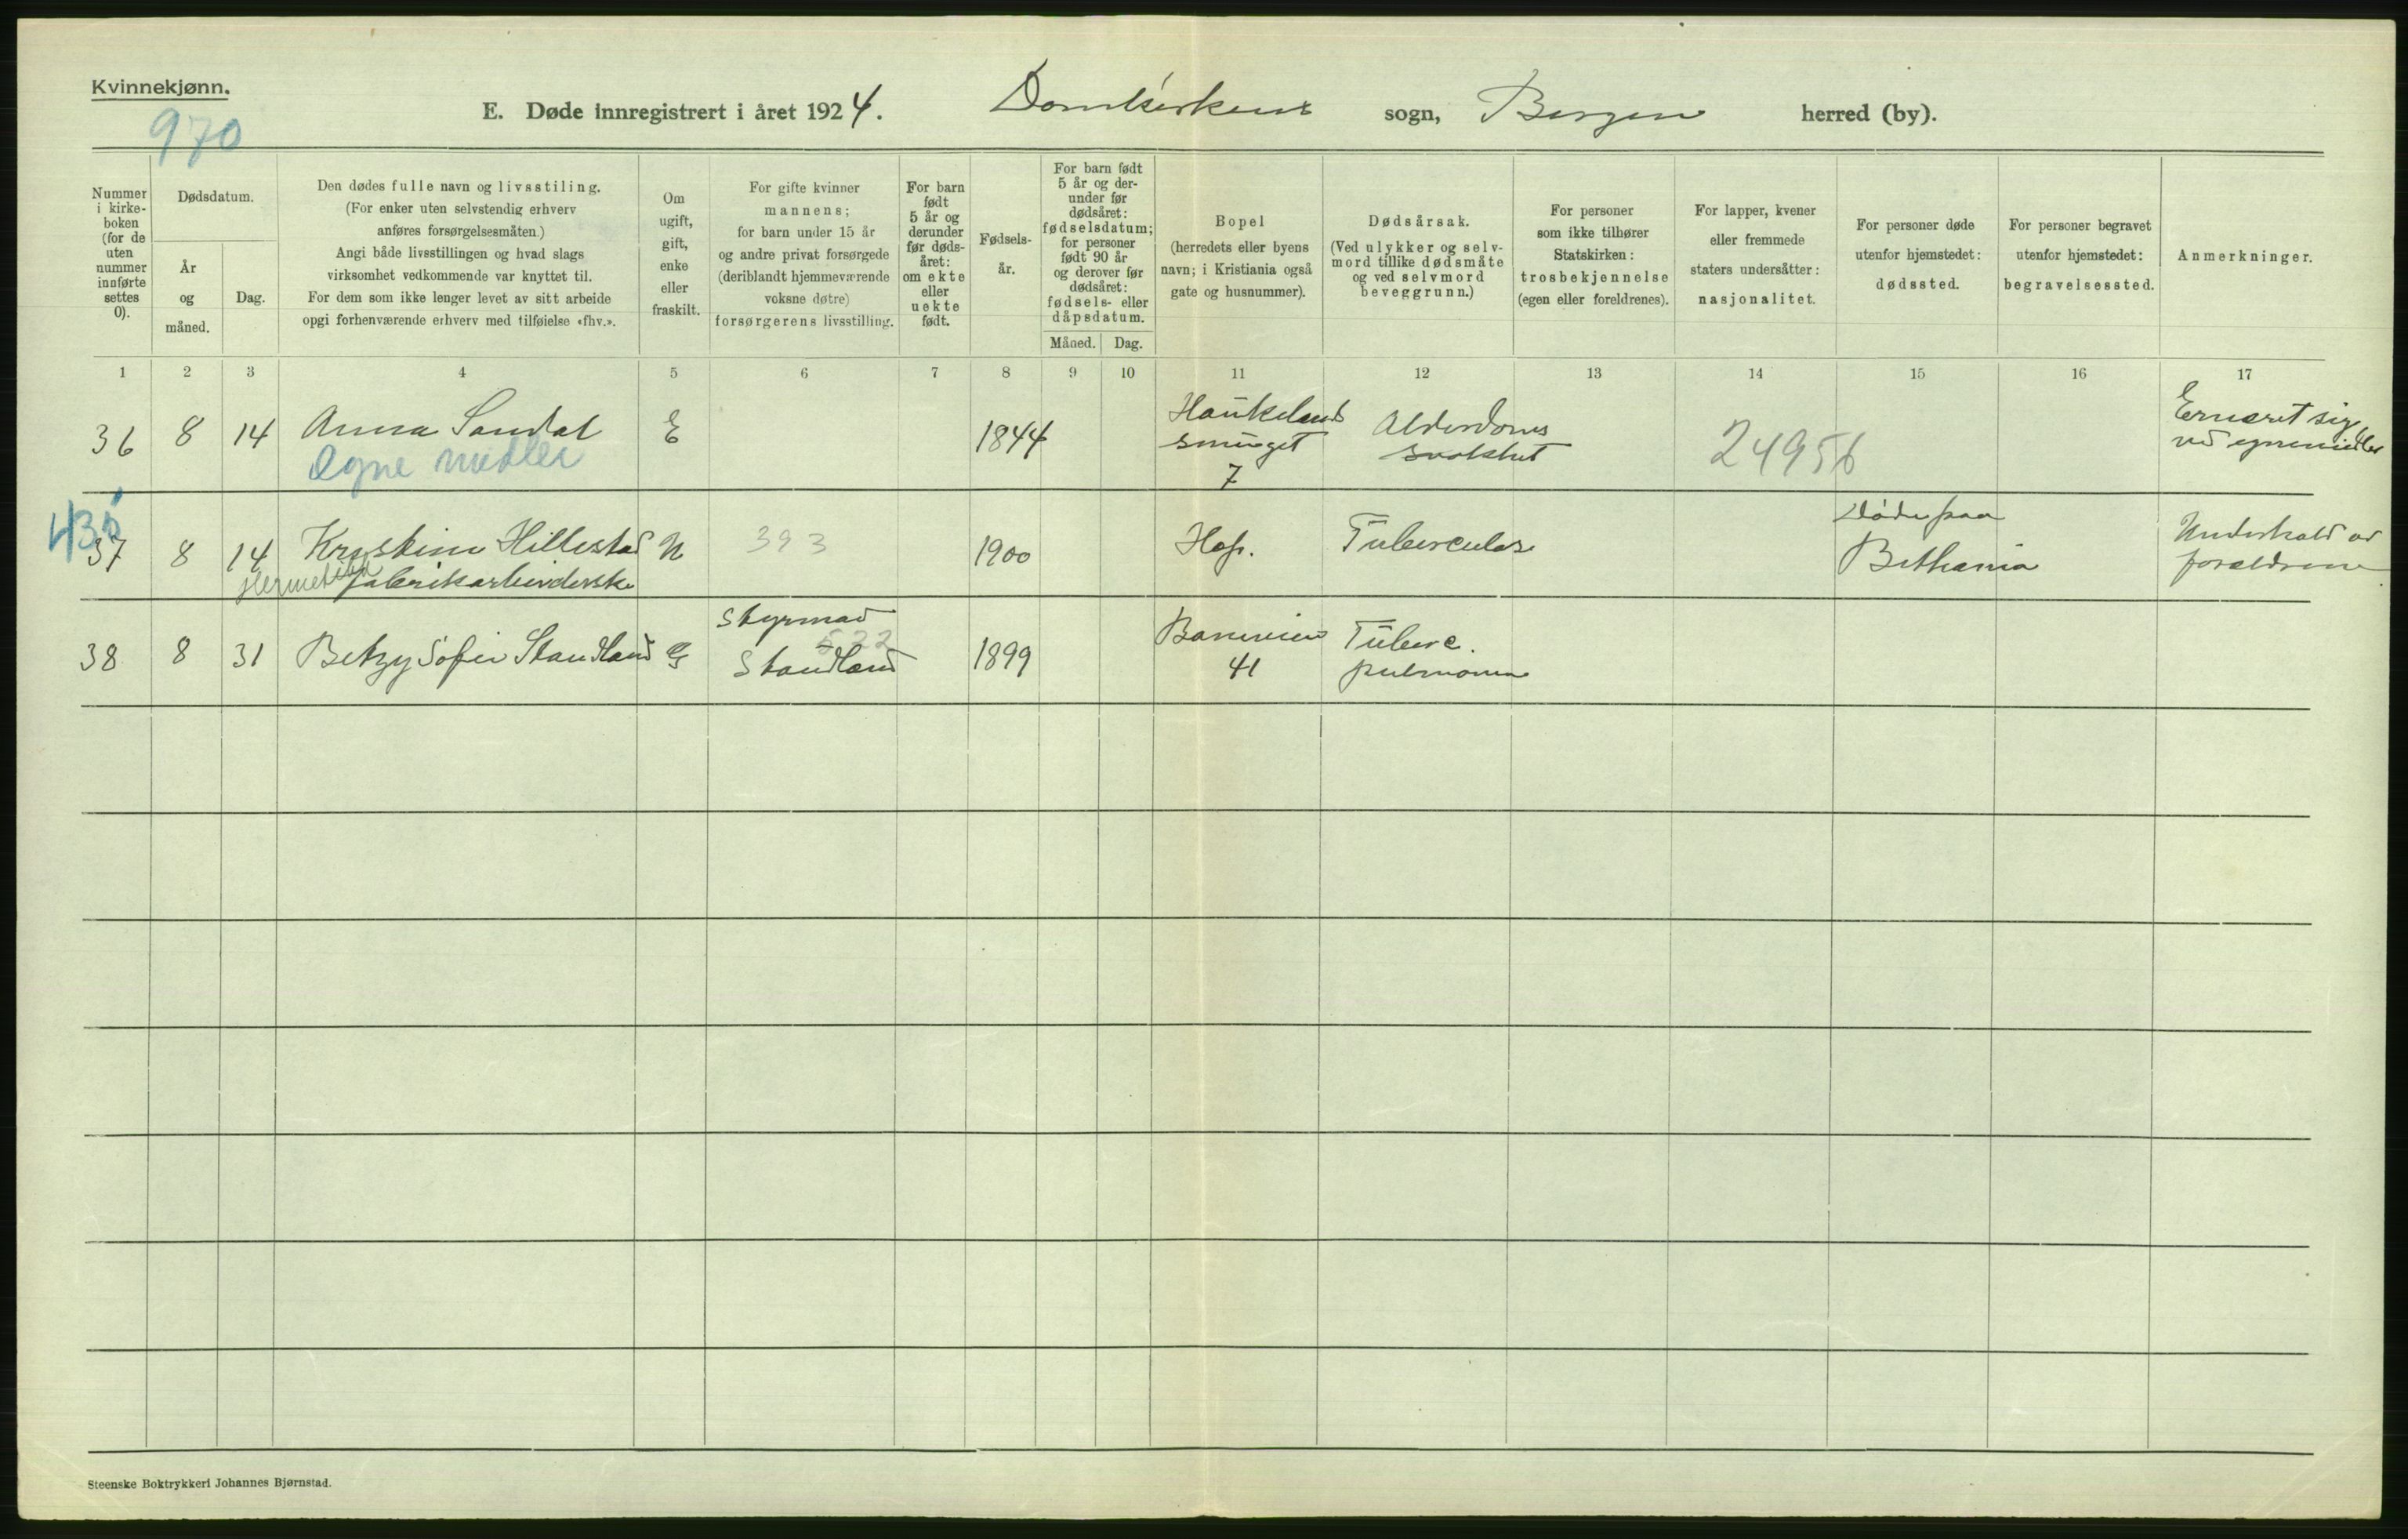 Kvinnekjønn.
970
E. Døde innregistrert i året 1924. Domkirkens sogn, Bergen herred (by).
Nummer i kirke- boken (for de uten nummer innførte settes 0).
Dødsdatum.
År og måned.
Dag.
Den dødes fulle navn og livsstiling.
(For enker uten selvstendig erhverv
anføres forsørgelsesmåten.)
Angi både livsstillingen og hvad slags
virksomhet vedkommende var knyttet til.
For dem som ikke lenger levet av sitt arbeide
opgi forhenværende erhverv med tilføielse «fhv.».
Om ugift, gift, enke eller fraskilt.
For gifte kvinner
mannens;
for barn under 15 år
og andre privat forsørgede
(deriblandt hjemmeværende
voksne døtre)
forsørgerens livsstilling.
For barn født 5 år og derunder før døds- året: om ekte eller uekte født.
Fødsels- år.
For barn født 5 år og der- under før dødsåret: fødselsdatum; for personer født 90 år og derover før dødsåret: fødsels- eller dåpsdatum.
Måned. Dag.
Bopel
(herredets eller byens
navn; i Kristiania også
gate og husnummer).
Dødsårsak.
(Ved ulykker og selv-
mord tillike dødsmåte
og ved selvmord
beveggrunn.)
For personer
som ikke tilhører
Statskirken:
trosbekjennelse
(egen eller foreldrenes).
For lapper, kvener
eller fremmede
staters undersåtter:
nasjonalitet.
For personer døde
utenfor hjemstedet:
dødssted.
For personer begravet
utenfor hjemstedet:
begravelsessted.
Anmerkninger.
1 2 3 4 5 6 7 8 9 10 11 12 13 14 15 16 17
36 8 14 Anna Sandal E 1844 Haukelands
smuget
7
Alderdoms
svakhet
24956
Ernæret sig
ved egne midler
Egne midler
435
37 8 14 Kristine Hillestad U 393 1900 Hop. Tuberculose
Døde paa
Bethania
Underhold av
forældrene
Hermetikk fabrikarbeiderske
38 8 31 Betzy Sofie Standland G
Styrmand
522
Standland
1899
Baneveien
41
Tuberc.
pulmonum
Steenske Boktrykkeri Johannes Bjørnstad.